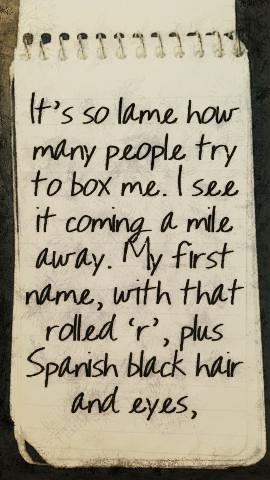 It's so lame how
many people try
to box me. I see
it coming a mile
away. My first
name, with that
rolled 'r', plus
Spanish black hair
and eyes,